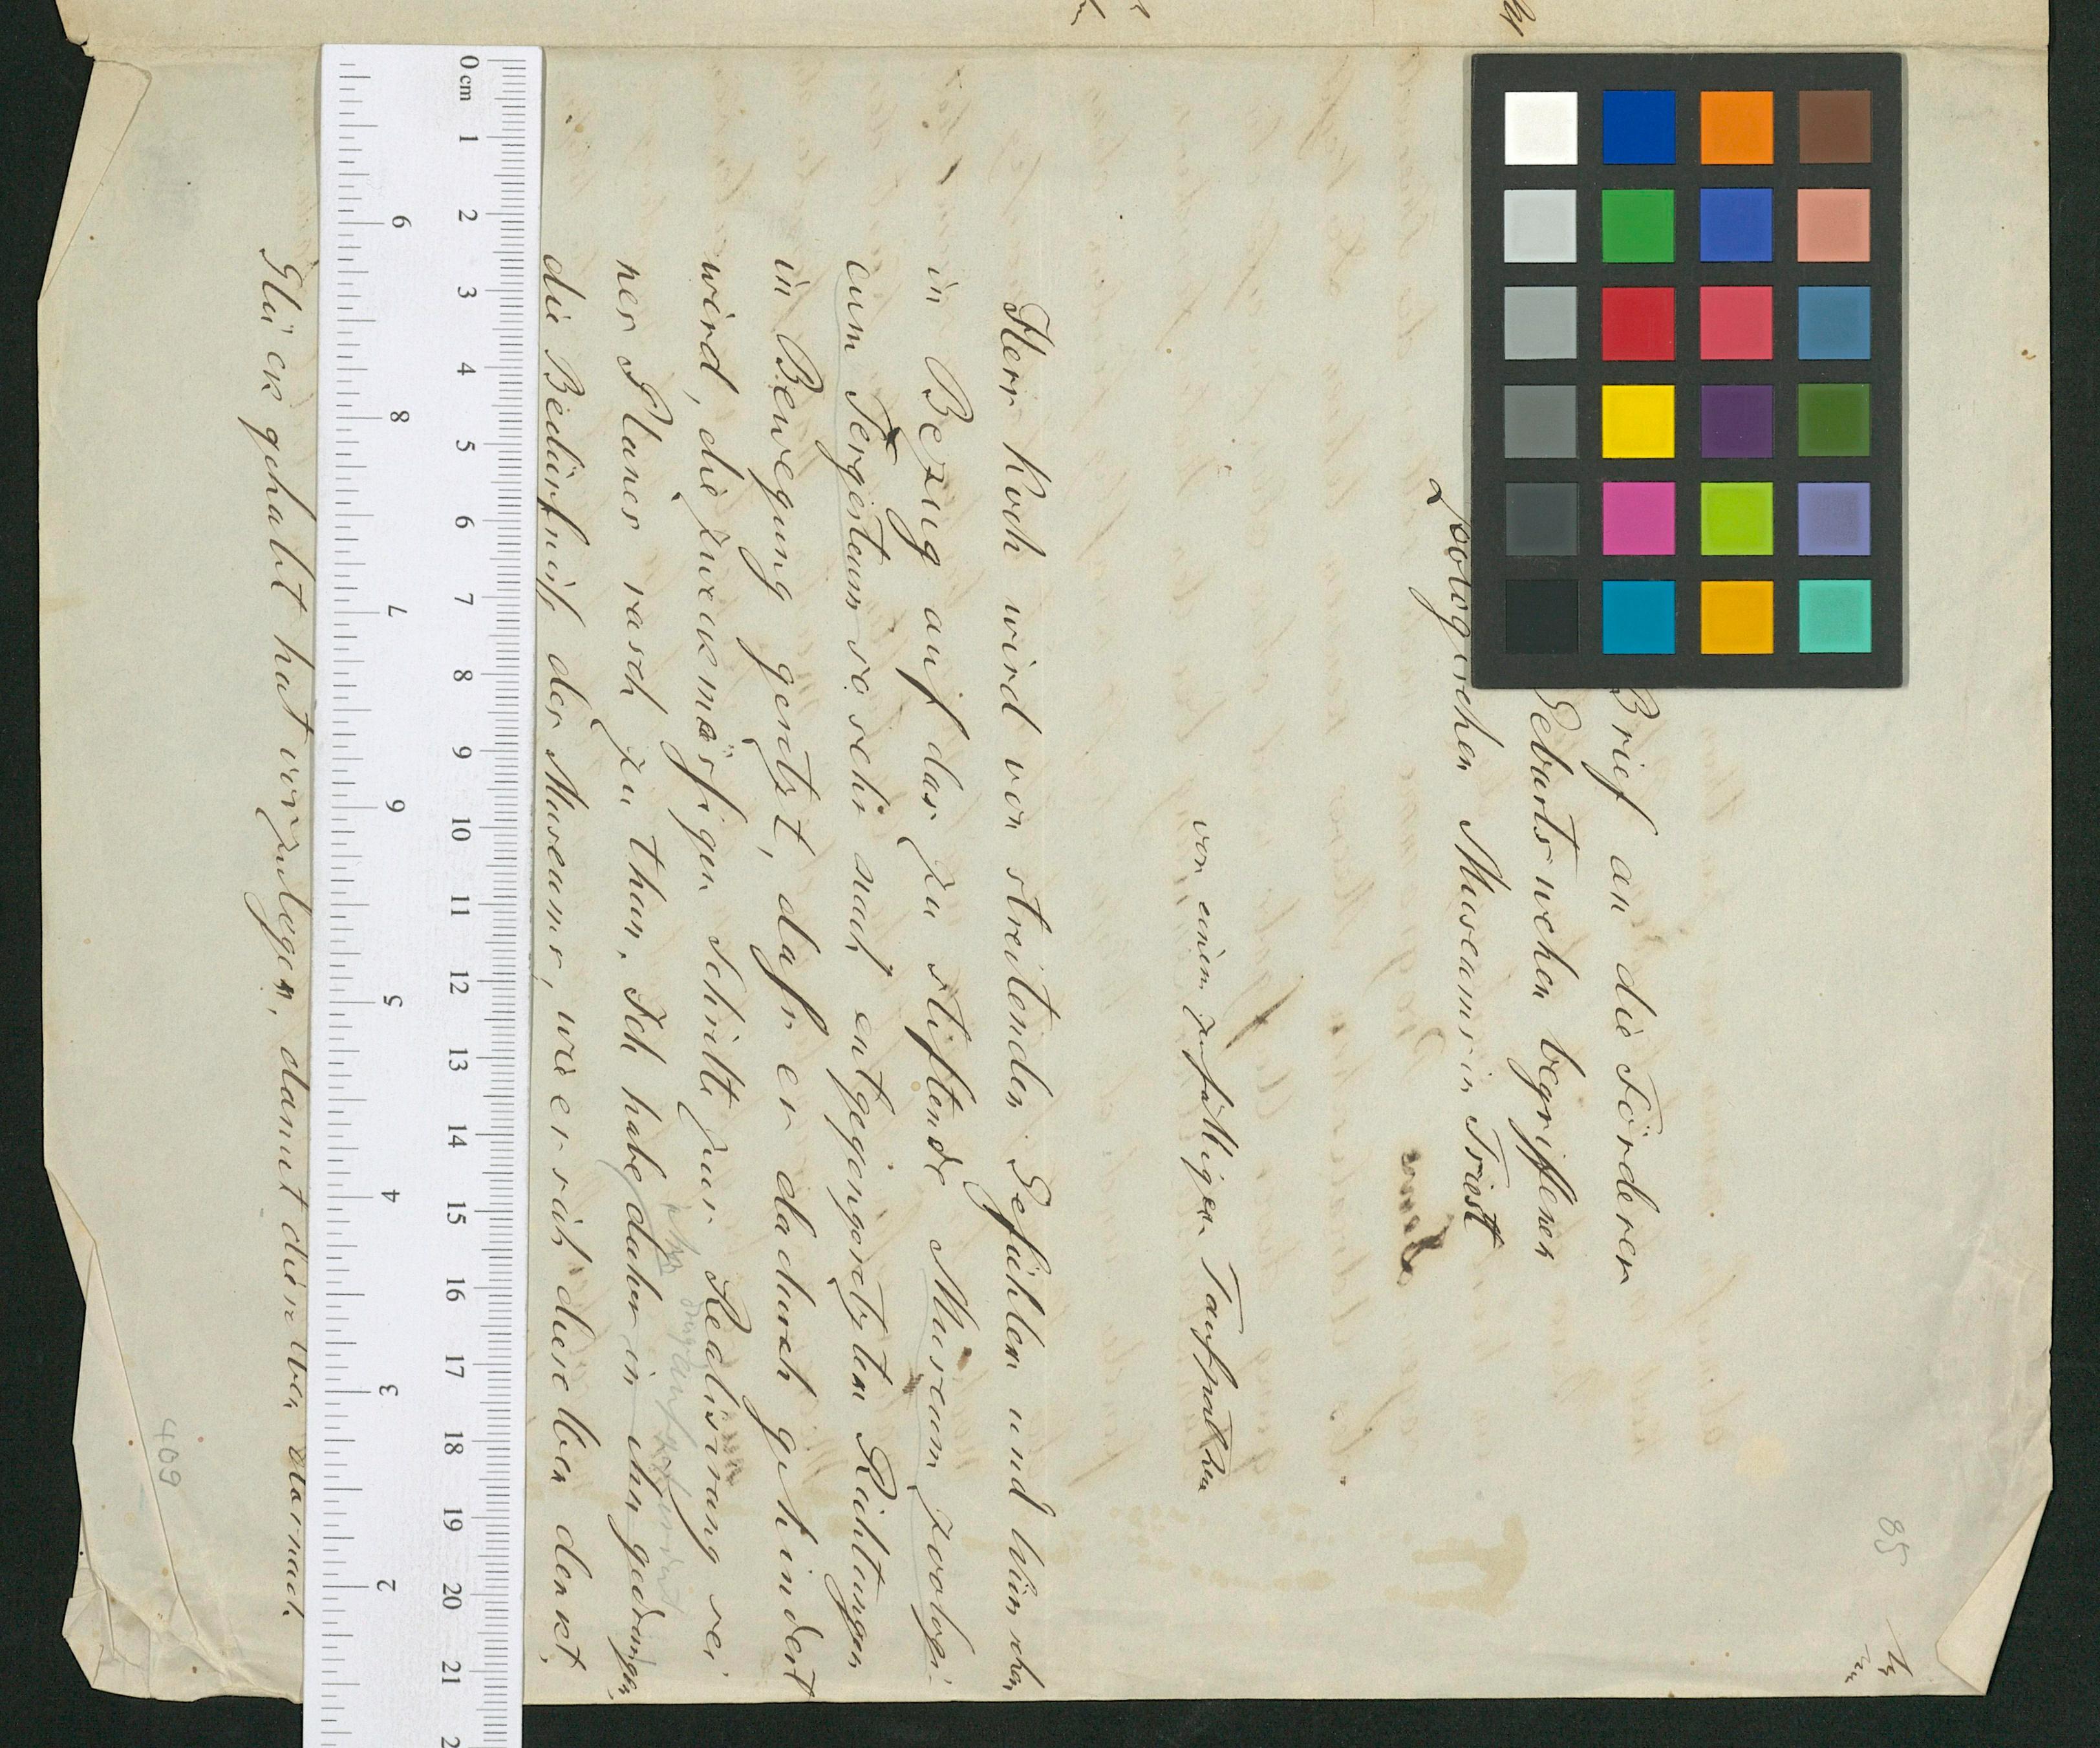 85
Brief an die Förderer
Geburtswehen begriffenen
Zoologischen Museums in Triest
von einem zufälligen Taufpathen
Herr Koch wird von streitenden Gefühlen und Wünschen
in Bezug auf das zu stiftende Museum zoologi-
cum Tergesteum so sehr nach entgegengesetzten Richtungen
in Bewegung gesetzt, dass er dadurch gehindert
wird, die zweckmässigen Schritte zur Realisirung sei
ner Planes rasch zu thun. Ich habe daher in ihn gedrungen
die Bedürfniss der Museums, wie er sich dieselben denkt,
0 cm 1 2 3 4 5 6 7 8 9 10 11 12 13 14 15 16 17 18 19 20 21 2
9 8 7 6 5 4 3 2
Glück gehabt hat vorzulegen, damit dieselben darnach
409